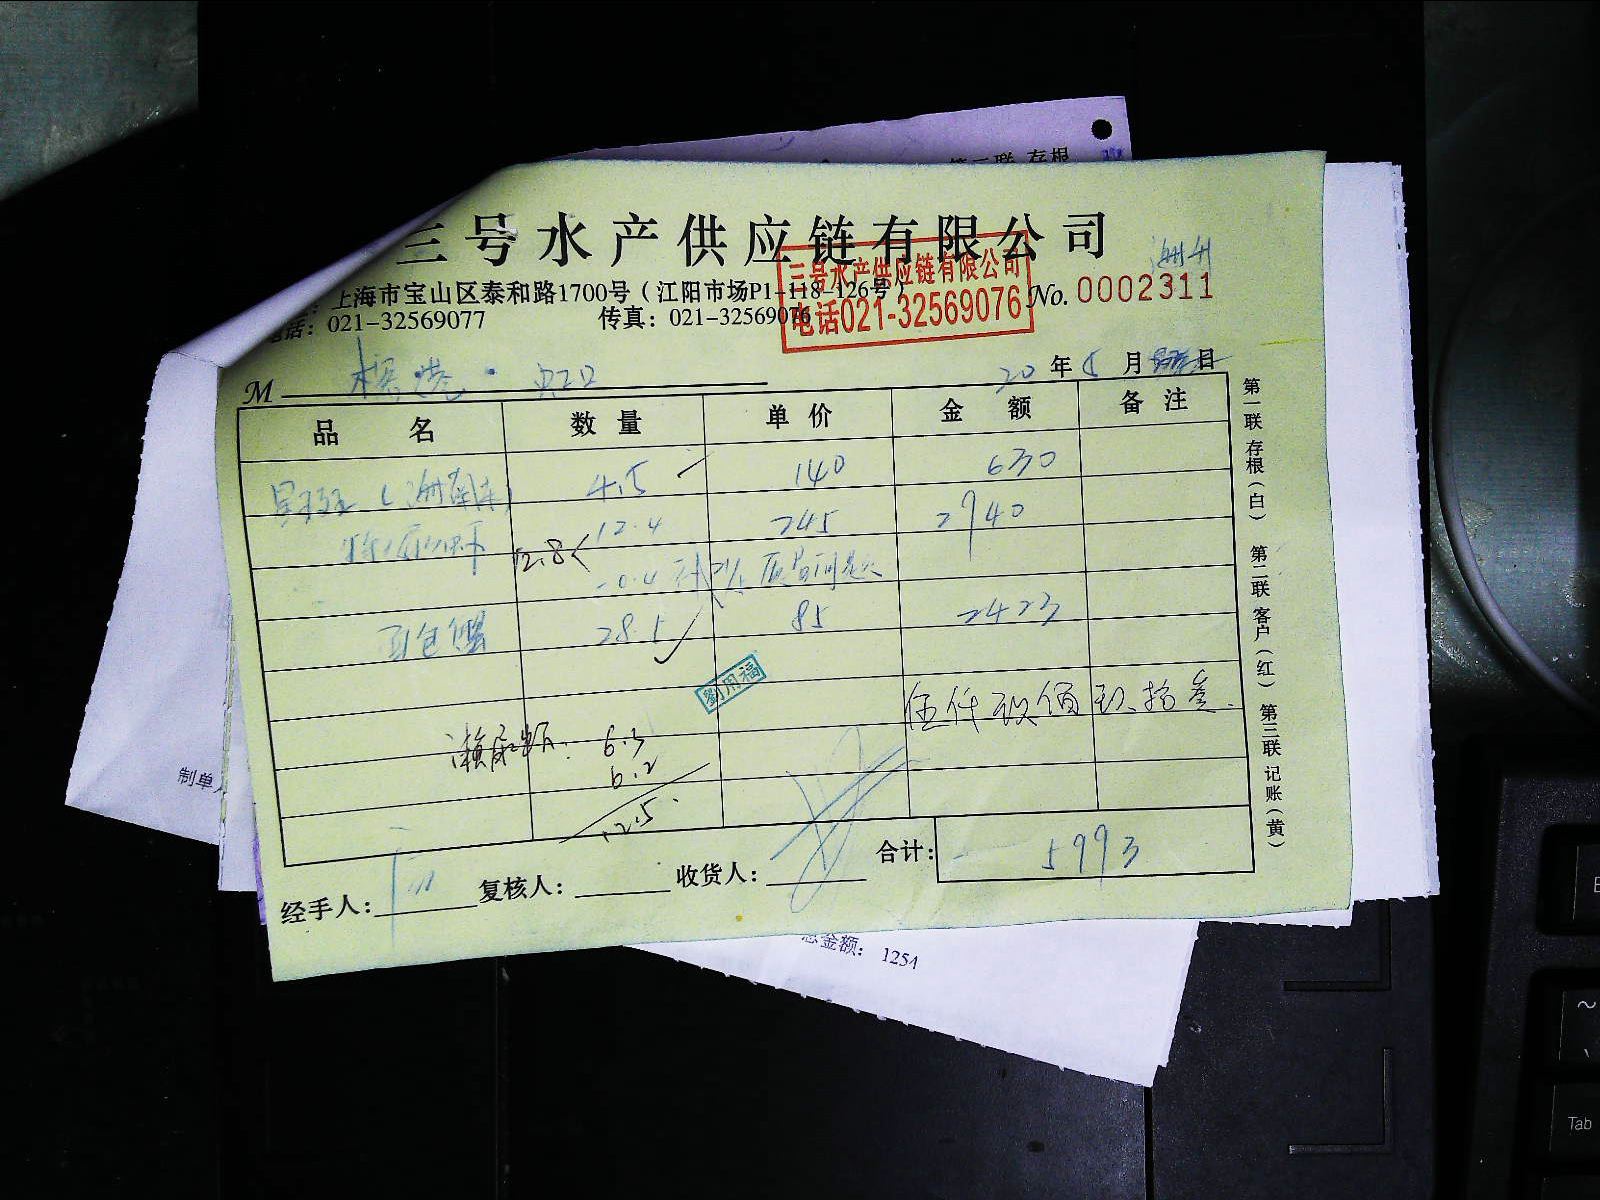 第二联 存根
三号水产供应链有限公司
上海市宝山区泰和路1700号（江阳市场P1-118-126号）
电话：021-32569077 传真：021-32569076
三号水产供应链有限公司
电话021-32569076
No. 0002311
M
20 年 5 月 日
品 名 数 量 单 价 金 额 备 注
4.5 140 630
12.8< 12.4 245 2940
-0.4 质量问题
面包蟹 28.5 85 2423
劉用福
伍仟玖佰玖拾叁.
濑尿虾. 6.3
6.2
12.5.
合计： 5993
经手人： 复核人： 收货人：
第一联 存根（白） 第二联 客户（红） 第三联 记账（黄）
制单人
总金额： 1254
Tab